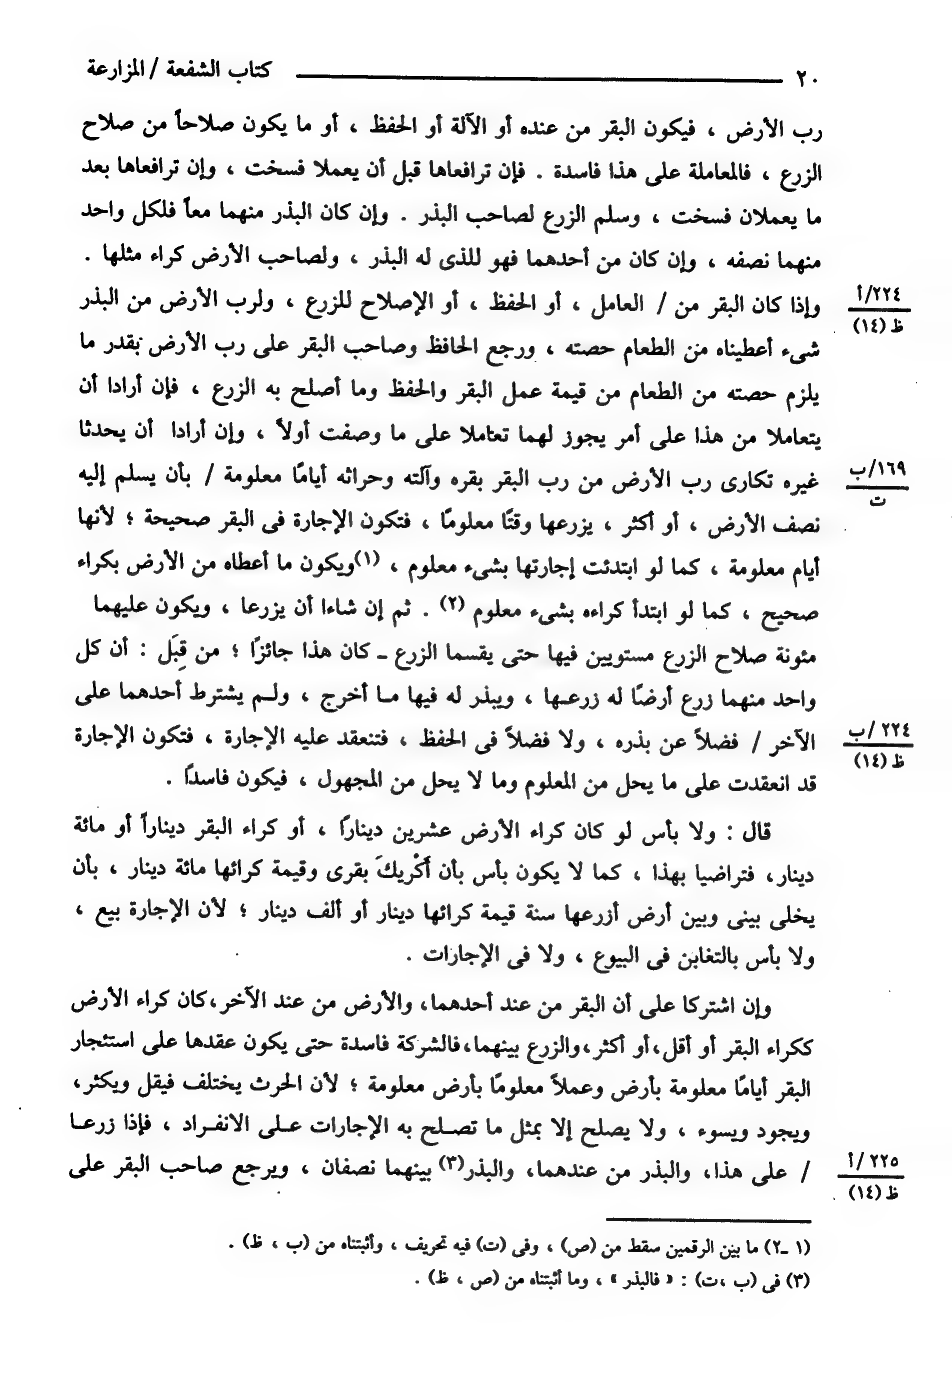 ٢٠ كتاب الشفعة / المزارعة
رب الأرض ، فيكون البقر من عنده أو الآلة أو الحفظ ، أو ما يكون صلاحاً من صلاح
الزرع ، فالمعاملة على هذا فاسدة . فإن ترافعاها قبل أن يعملا فسخت ، وإن ترافعاها بعد
ما يعملان فسخت ، وسلم الزرع لصاحب البذر . وإن كان البذر منهما معاً فلكل واحد
منهما نصفه ، وإن كان من أحدهما فهو للذى له البذر ، ولصاحب الأرض كراء مثلها .
وإذا كان البقر من / العامل ، أو الحفظ ، أو الإصلاح للزرع ، ولرب الأرض من البذر
٢٢٤/أ
ظ (١٤)
شىء أعطيناه من الطعام حصته ، ورجع الحافظ وصاحب البقر على رب الأرض بقدر ما
يلزم حصته من الطعام من قيمة عمل البقر والحفظ وما أصلح به الزرع ، فإن أرادا أن
يتعاملا من هذا على أمر يجوز لهما تعاملا على ما وصفت أولاً ، وإن أرادا أن يحدثا
غيره تكارى رب الأرض من رب البقر بقره وآلته وحراثه أيامًا معلومة / بأن يسلم إليه
١٦٩/ب
ت
نصف الأرض ، أو أكثر ، يزرعها وقتًا معلومًا ، فتكون الإجارة فى البقر صحيحة ؛ لأنها
أيام معلومة ، كما لو ابتدئت إجارتها بشىء معلوم ، (١)ويكون ما أعطاه من الأرض بكراء
صحيح ، كما لو ابتدأ كراءه بشىء معلوم (٢) . ثم إن شاءا أن يزرعا ، ويكون عليهما
مئونة صلاح الزرع مستويين فيها حتى يقسما الزرع ـ كان هذا جائزًا ؛ من قِبَل : أن كل
واحد منهما زرع أرضًا له زرعها ، ويبذر له فيها ما أخرج ، ولم يشترط أحدهما على
الآخر / فضلاً عن بذره ، ولا فضلاً فى الحفظ ، فتنعقد عليه الإجارة ، فتكون الإجارة
٢٢٤ /ب
ظ (١٤)
قد انعقدت على ما يحل من المعلوم وما لا يحل من المجهول ، فيكون فاسدًا .
قال : ولا بأس لو كان كراء الأرض عشرين دينارًا ، أو كراء البقر ديناراً أو مائة
دينار، فتراضيا بهذا ، كما لا يكون بأس بأن أُكْريكَ بقرى وقيمة كرائها مائة دينار ، بأن
يخلى بينى وبين أرض أزرعها سنة قيمة كرائها دينار أو ألف دينار ؛ لأن الإجارة بيع ،
ولا بأس بالتغابن فى البيوع ، ولا فى الإجارات .
وإن اشتركا على أن البقر من عند أحدهما، والأرض من عند الآخر،كان كراء الأرض
ككراء البقر أو أقل،أو أكثر،والزرع بينهما،فالشركة فاسدة حتى يكون عقدها على استئجار
البقر أيامًا معلومة بأرض وعملاً معلومًا بأرض معلومة ؛ لأن الحرث يختلف فيقل ويكثر،
ويجود ويسوء ، ولا يصلح إلا بمثل ما تصلح به الإجارات على الانفراد ، فإذا زرعا
/ على هذا، والبذر من عندهما، والبذر(٣) بينهما نصفان ، ويرجع صاحب البقر على
٢٢٥ /أ
ظ (١٤)
(١ ـ٢) ما بين الرقمين سقط من (ص) ، وفى (ت) فيه تحريف ، وأثبتناه من (ب ، ظ) .
(٣) فى (ب ،ت) : « فالبذر » ، وما أثبتناه من (ص ، ظ) .